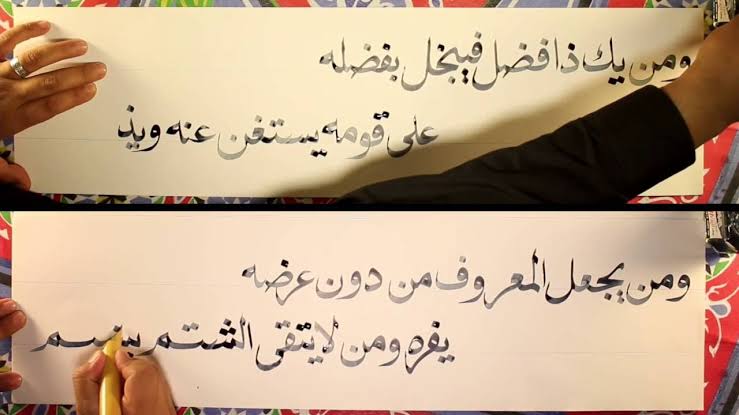 ومن يك ذا فضل فيبخل بفضله
على قومه يستغن عنه ويذ
ومن يجعل المعروف من دون عرضه
يفره ومن لا يتقى الشتم يشتم